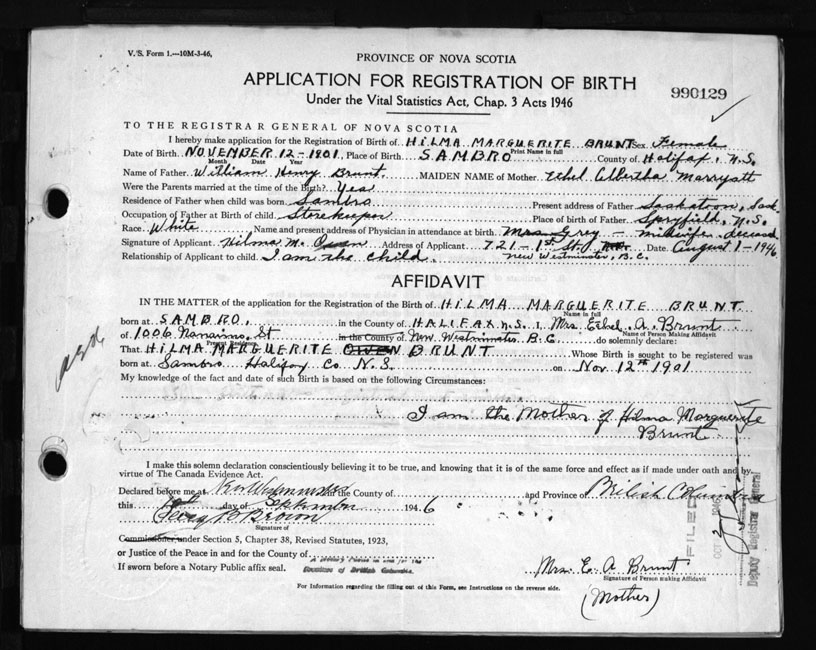 V.S. Form 1.—10M-3-46,
PROVINCE OF NOVA SCOTIA
APPLICATION FOR REGISTRATION OF BIRTH
990129
Under the Vital Statistics Act, Chap. 3 Acts 1946
TO THE REGISTRAR GENERAL OF NOVA SCOTIA
I hereby make application for the Registration of Birth of HILMA MARGUERITE BRUNT Sex Female
Print Name in full
Date of Birth NOVEMBER 12-1901 Place of Birth SAMBRO County of Halifax, N.S.
Month Date Year
Name of Father William Henry Brunt MAIDEN NAME of Mother Ethel Albertha Marryatt
Were the Parents married at the time of the Birth? Yes
Residence of Father when child was born Sambro Present address of Father Saskatoon, Sask.
Occupation of Father at Birth of child. Storekeeper Place of birth of Father Spryfield, N.S.
Race. White Name and present address of Physician in attendance at birth Mrs Grey - midwife, deceased
Signature of Applicant Hilma M. Owen Address of Applicant 721-1st St., Date August 1-1946
Relationship of Applicant to child. I am the child. New Westminster, B.C.
AFFIDAVIT
IN THE MATTER of the application for the Registration of the Birth of HILMA MARGUERITE BRUNT
Name in full
born at SAMBRO, in the County of HALIFAX N.S. I, Mrs. Ethel A. Brunt
Name of Person Making Affidavit
of 1006 Nanaimo St in the County of New Westminster B.C. do solemnly declare:
Present Residence
That HILMA MARGUERITE OWEN BRUNT Whose Birth is sought to be registered was
born at Sambro Halifax Co N.S. on Nov. 12th 1901
My knowledge of the fact and date of such Birth is based on the following Circumstances:
I am the Mother of Hilma Marguerite
Brunt
I make this solemn declaration conscientiously believing it to be true, and knowing that it is of the same force and effect as if made under oath and by
virtue of The Canada Evidence Act.
Declared before me at New Westminster in the County of and Province of British Columbia
this day of September 1946
Brown
Signature of
Commissioner, under Section 5, Chapter 38, Revised Statutes, 1923,
or Justice of the Peace in and for the County of
A Notary Public in and for the
Province of British Columbia.
If sworn before a Notary Public affix seal.
Mrs. E. A. Brunt
Signature of Person making Affidavit
(Mother)
For Information regarding the filling out of this Form, see Instructions on the reverse side.
FILED
OCT
Deputy Registrar General